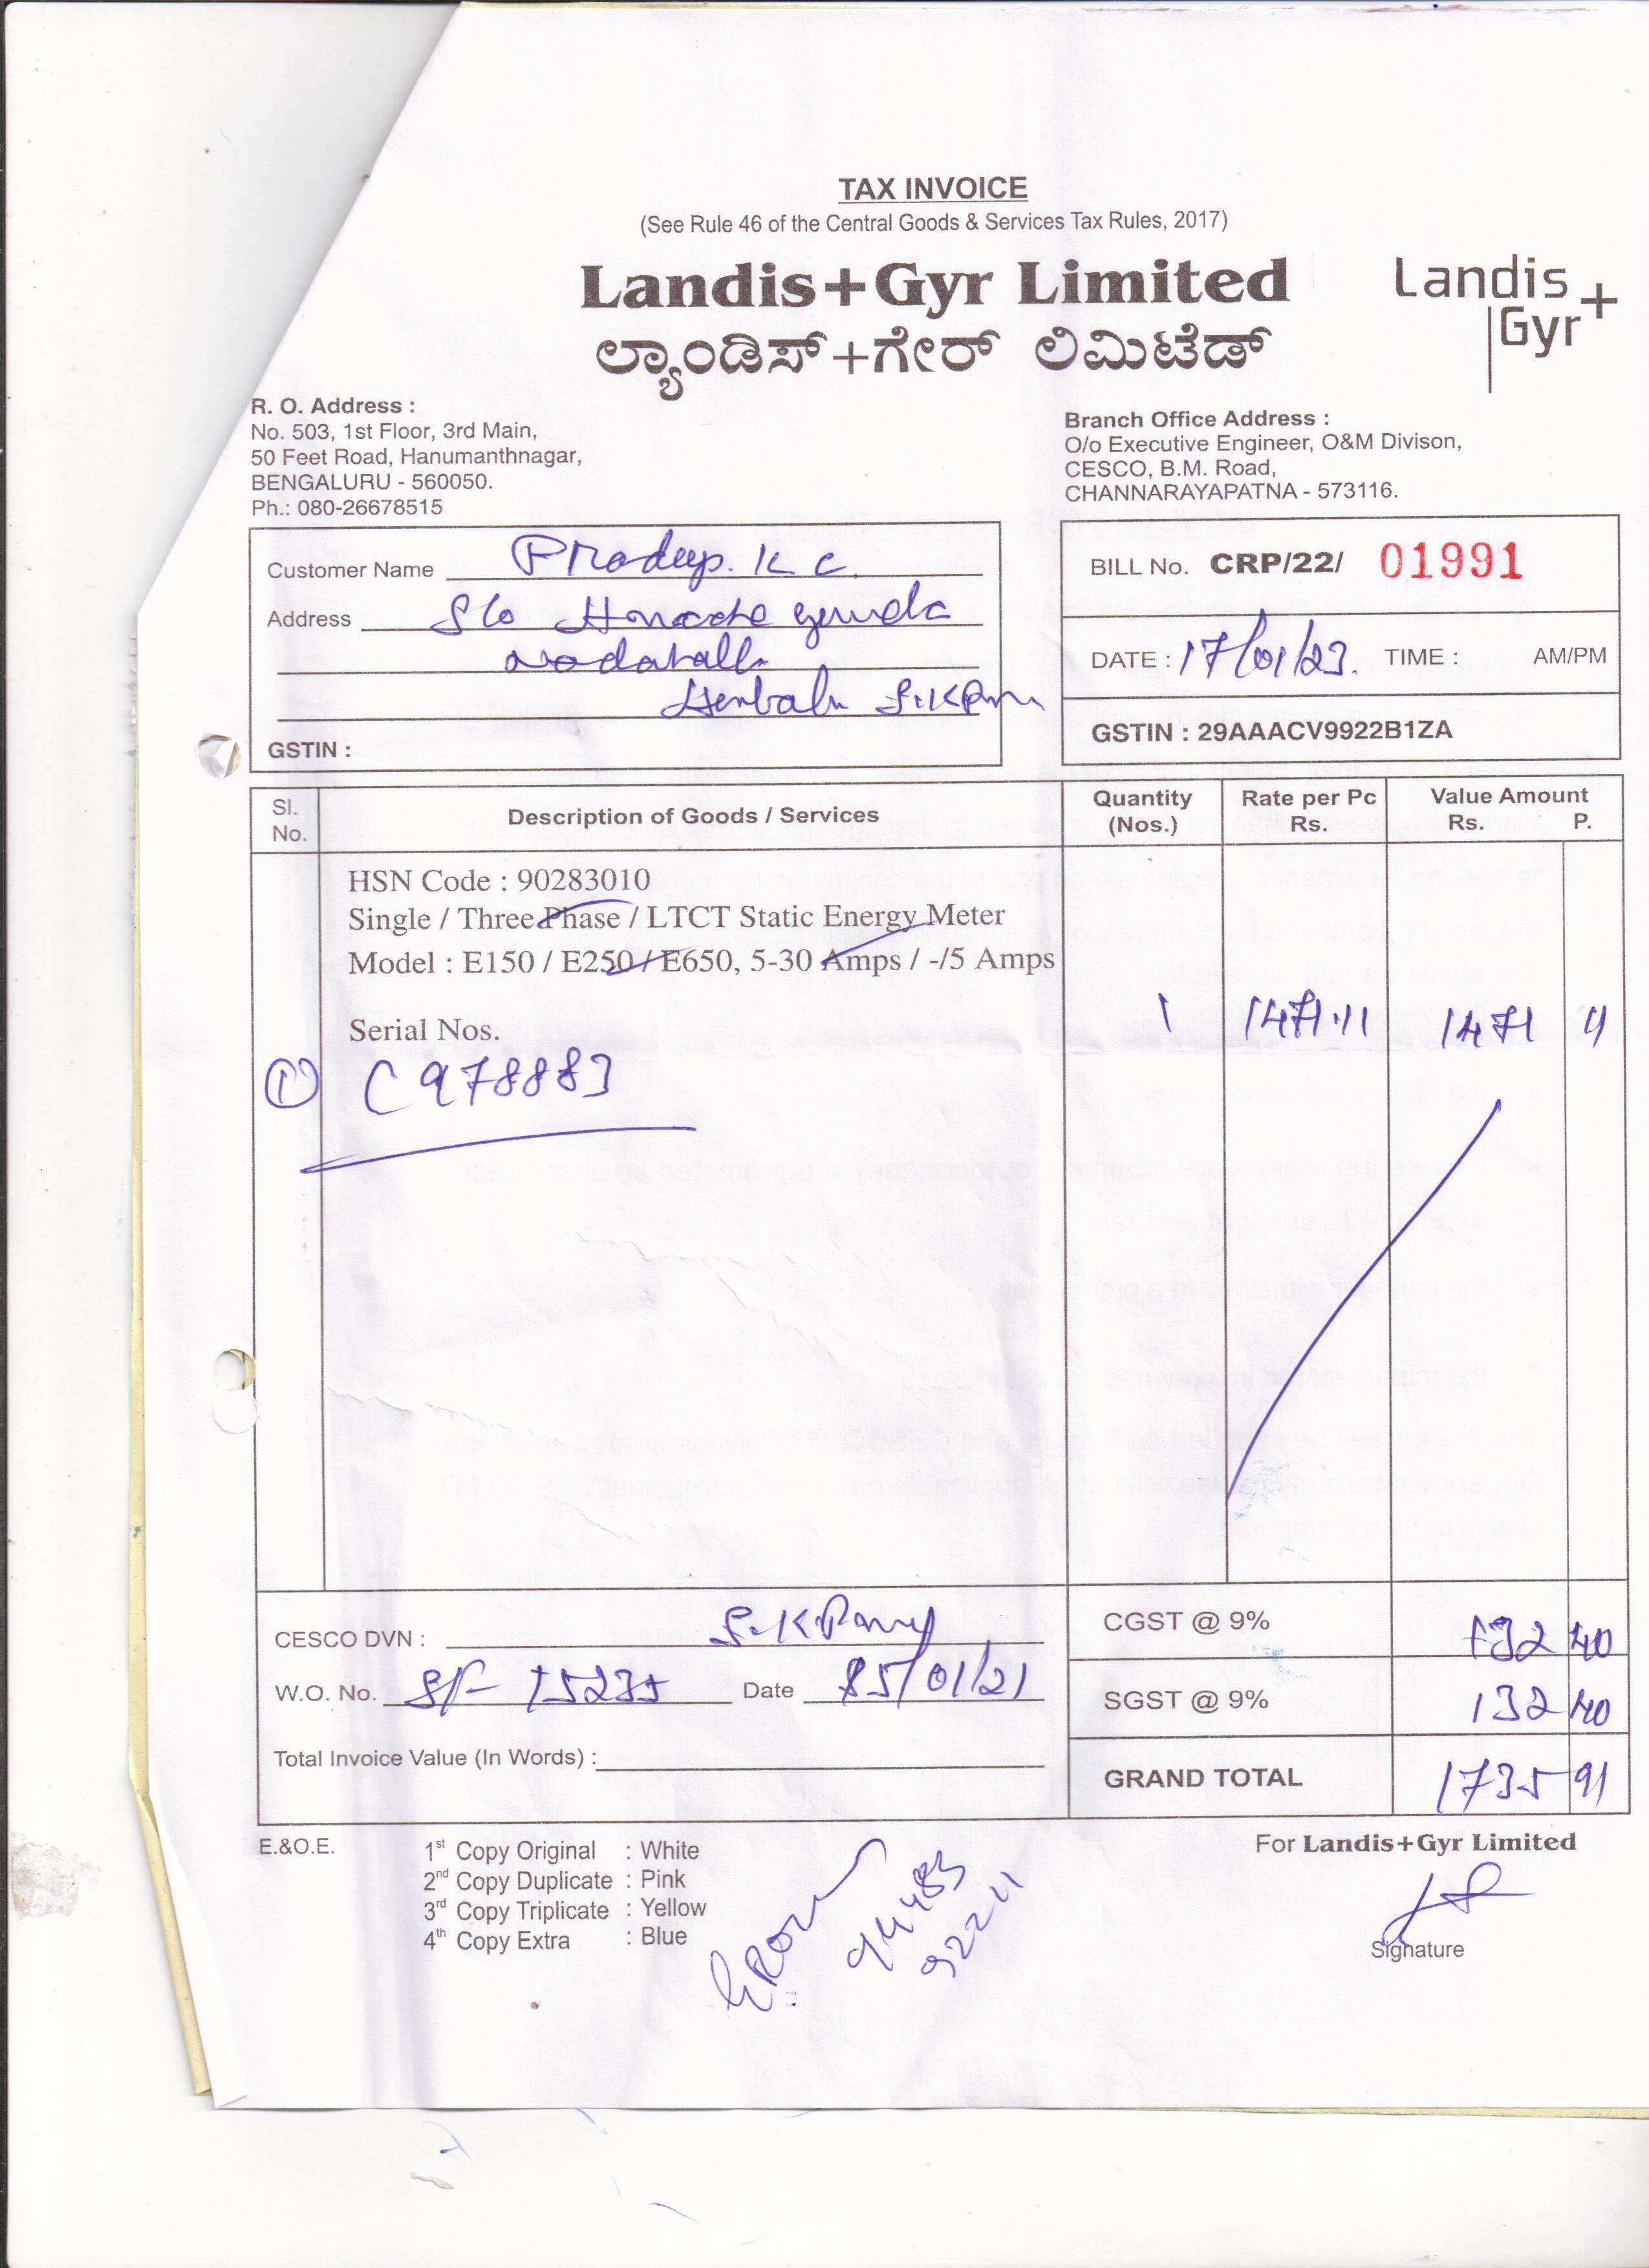 TAX INVOICE
(See Rule 46 of the Central Goods & Services Tax Rules, 2017)
Landis+Gyr Limited
ಲ್ಯಾಂಡಿಸ್+ಗೇರ್ ಲಿಮಿಟೆಡ್
Landis
Gyr+
R. O. Address :
No. 503, 1st Floor, 3rd Main,
50 Feet Road, Hanumanthnagar,
BENGALURU - 560050.
Ph.: 080-26678515
Branch Office Address :
O/o Executive Engineer, O&M Divison,
CESCO, B.M. Road,
CHANNARAYAPATNA - 573116.
Customer Name Pradeep. K C.
Address S/o
GSTIN :
BILL No. CRP/22/ 01991
DATE : 17/01/23. TIME : AM/PM
GSTIN : 29AAACV9922B1ZA
Sl. No. Description of Goods / Services Quantity (Nos.) Rate per Pc Rs. Value Amount Rs. P.
HSN Code : 90283010
Single / Three Phase / LTCT Static Energy Meter
Model : E150 / E250 / E650, 5-30 Amps / -/5 Amps
1 1471.11 1471 11
Serial Nos.
① (978883
CESCO DVN :
W.O. No. 15235 Date /01/21
Total Invoice Value (In Words) :
CGST @ 9% 132 40
SGST @ 9% 132 40
GRAND TOTAL 1735 91
E.&O.E.
1st Copy Original : White
2nd Copy Duplicate : Pink
3rd Copy Triplicate : Yellow
4th Copy Extra : Blue
For Landis+Gyr Limited
Signature